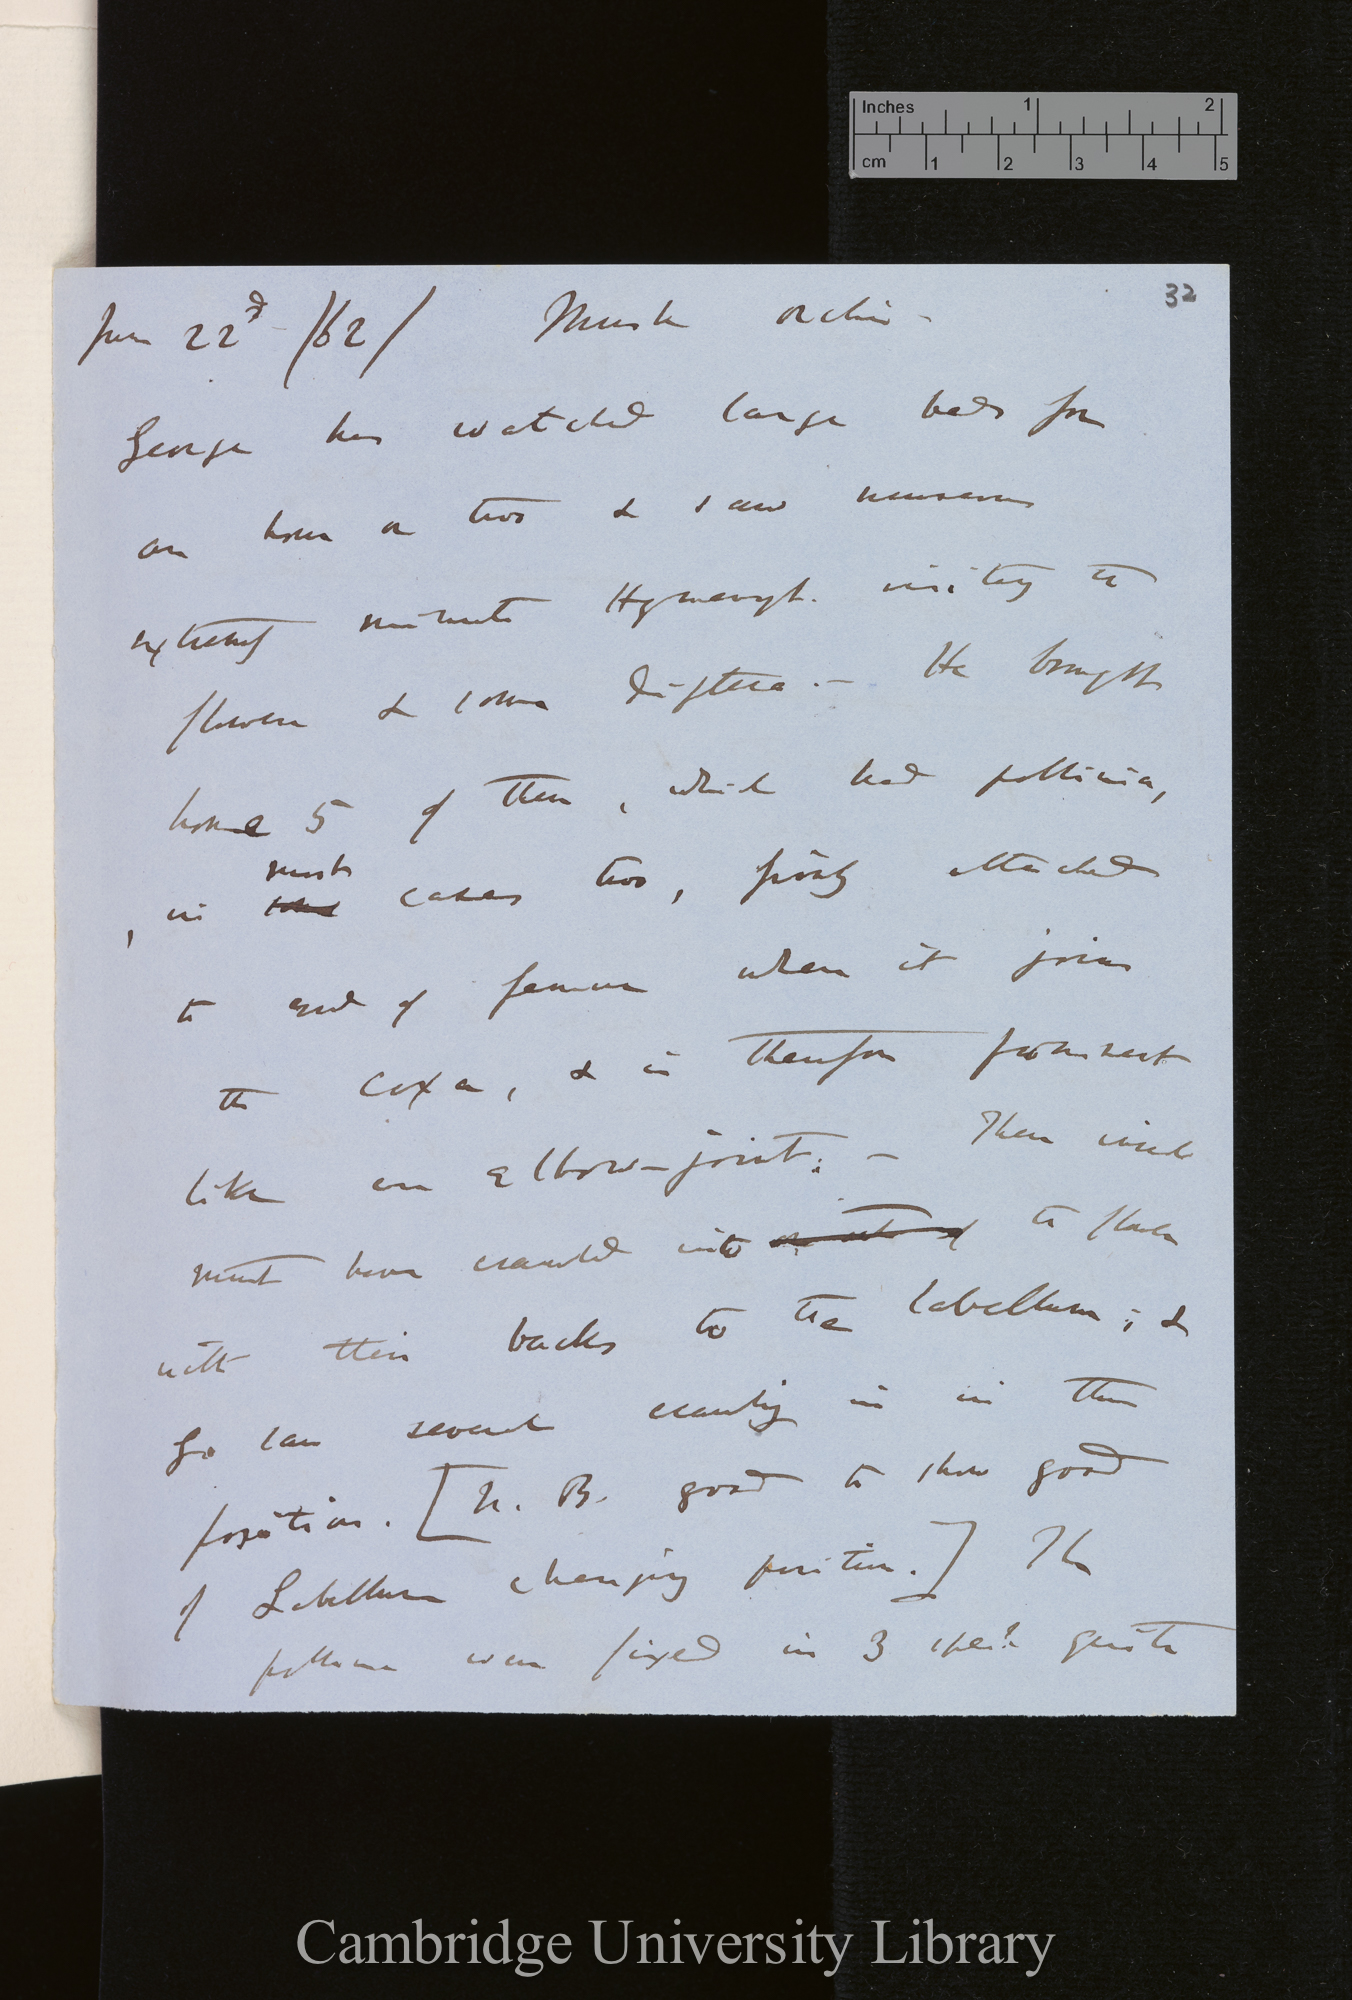 Inches 1 2
cm 1 2 3 4 5
32
June 22d /62/ Musk orchis —
George has watched large beds for
an hour or two & saw numerous
extremely minute Hymenopt. visiting the
flowers & some Diptera. — He brought
home 5 of them, which had pollinia,
most
, in some cases two, firmly attached
to end of femur when it joins
the coxa, & is therefore prominent
like an elbow-joint: — These insects
must have crawled into to flower
with their backs to the labellum; & 
Go saw several crawling in in this
position. [N. B. good to show good
of Labellum changing position.] The
pollinia were fixed in 3 speℓ. quite
Cambridge University Library